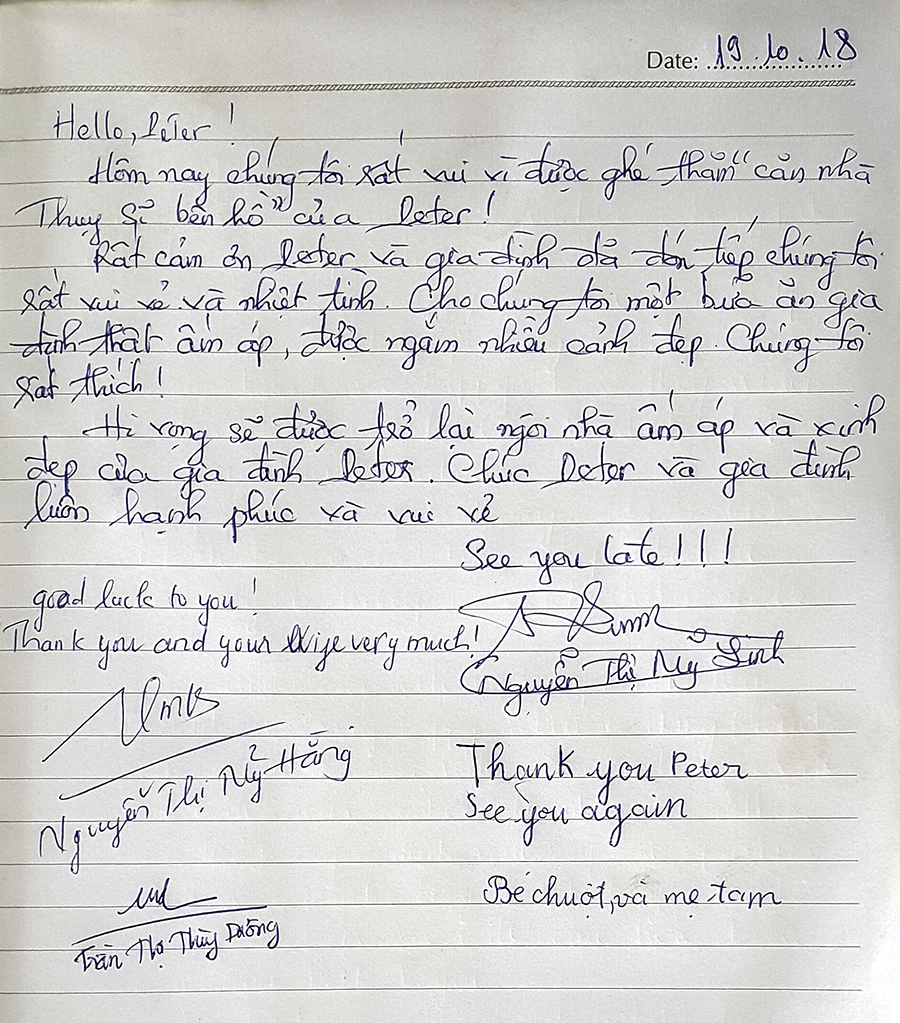 Date: 19.10.18
Hello, Peter!
Hôm nay chúng tôi rất vui vì được ghé thăm "căn nhà
Thụy Sĩ bên hồ" của Peter!
Rất cảm ơn Peter và gia đình đã đón tiếp chúng tôi
rất vui vẻ và nhiệt tình. Cho chúng tôi một bữa ăn gia
đình thật ấm áp, được ngắm nhiều cảnh đẹp. Chúng tôi
rất thích!
Hi vọng sẽ được trở lại ngôi nhà ấm áp và xinh
đẹp của gia đình Peter. Chúc Peter và gia đình
luôn hạnh phúc và vui vẻ
See you late!!!
good luck to you!
Thank you and your Wife very much!
Nguyễn Thị Mỹ Linh
Nguyễn Thị Mỹ Hằng
Thank you Peter
See you again
Bé chuột, và mẹ tam
Trần Thị Thùy Dương